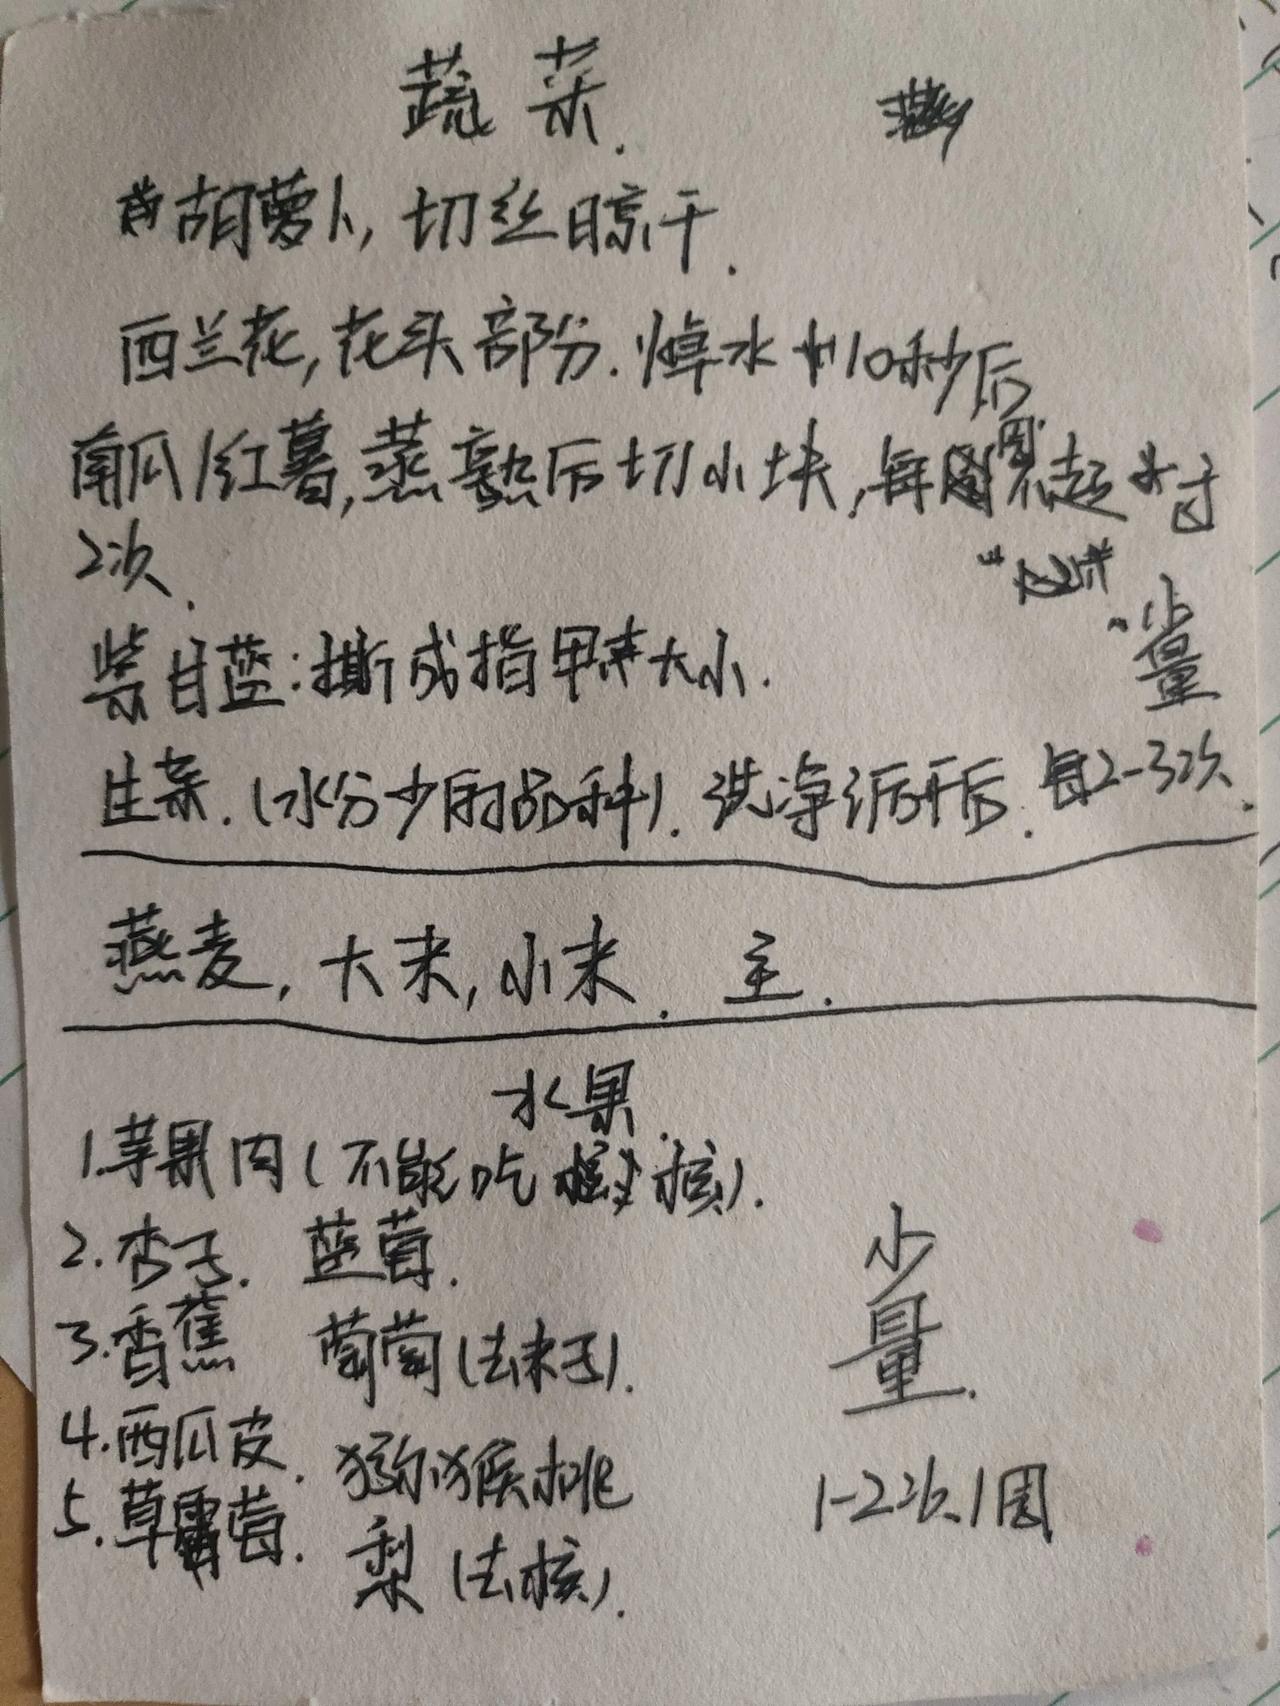 蔬菜.
胡萝卜, 切丝晾干.
西兰花, 花头部分. 焯水10秒后
南瓜/红薯, 蒸熟后切小块, 每周不超过
2次.
少量
紫甘蓝: 撕成指甲大小.
生菜. (水份少的品种). 洗净沥干后. 每2-3次.
燕麦, 大米, 小米. 主.
水果.
1.苹果肉(不能吃核).
2.杏子. 蓝莓.
3.香蕉 葡萄(去籽子).
4.西瓜皮. 猕猴桃
5.草莓. 梨(去核).
少量.
1-2次.1周